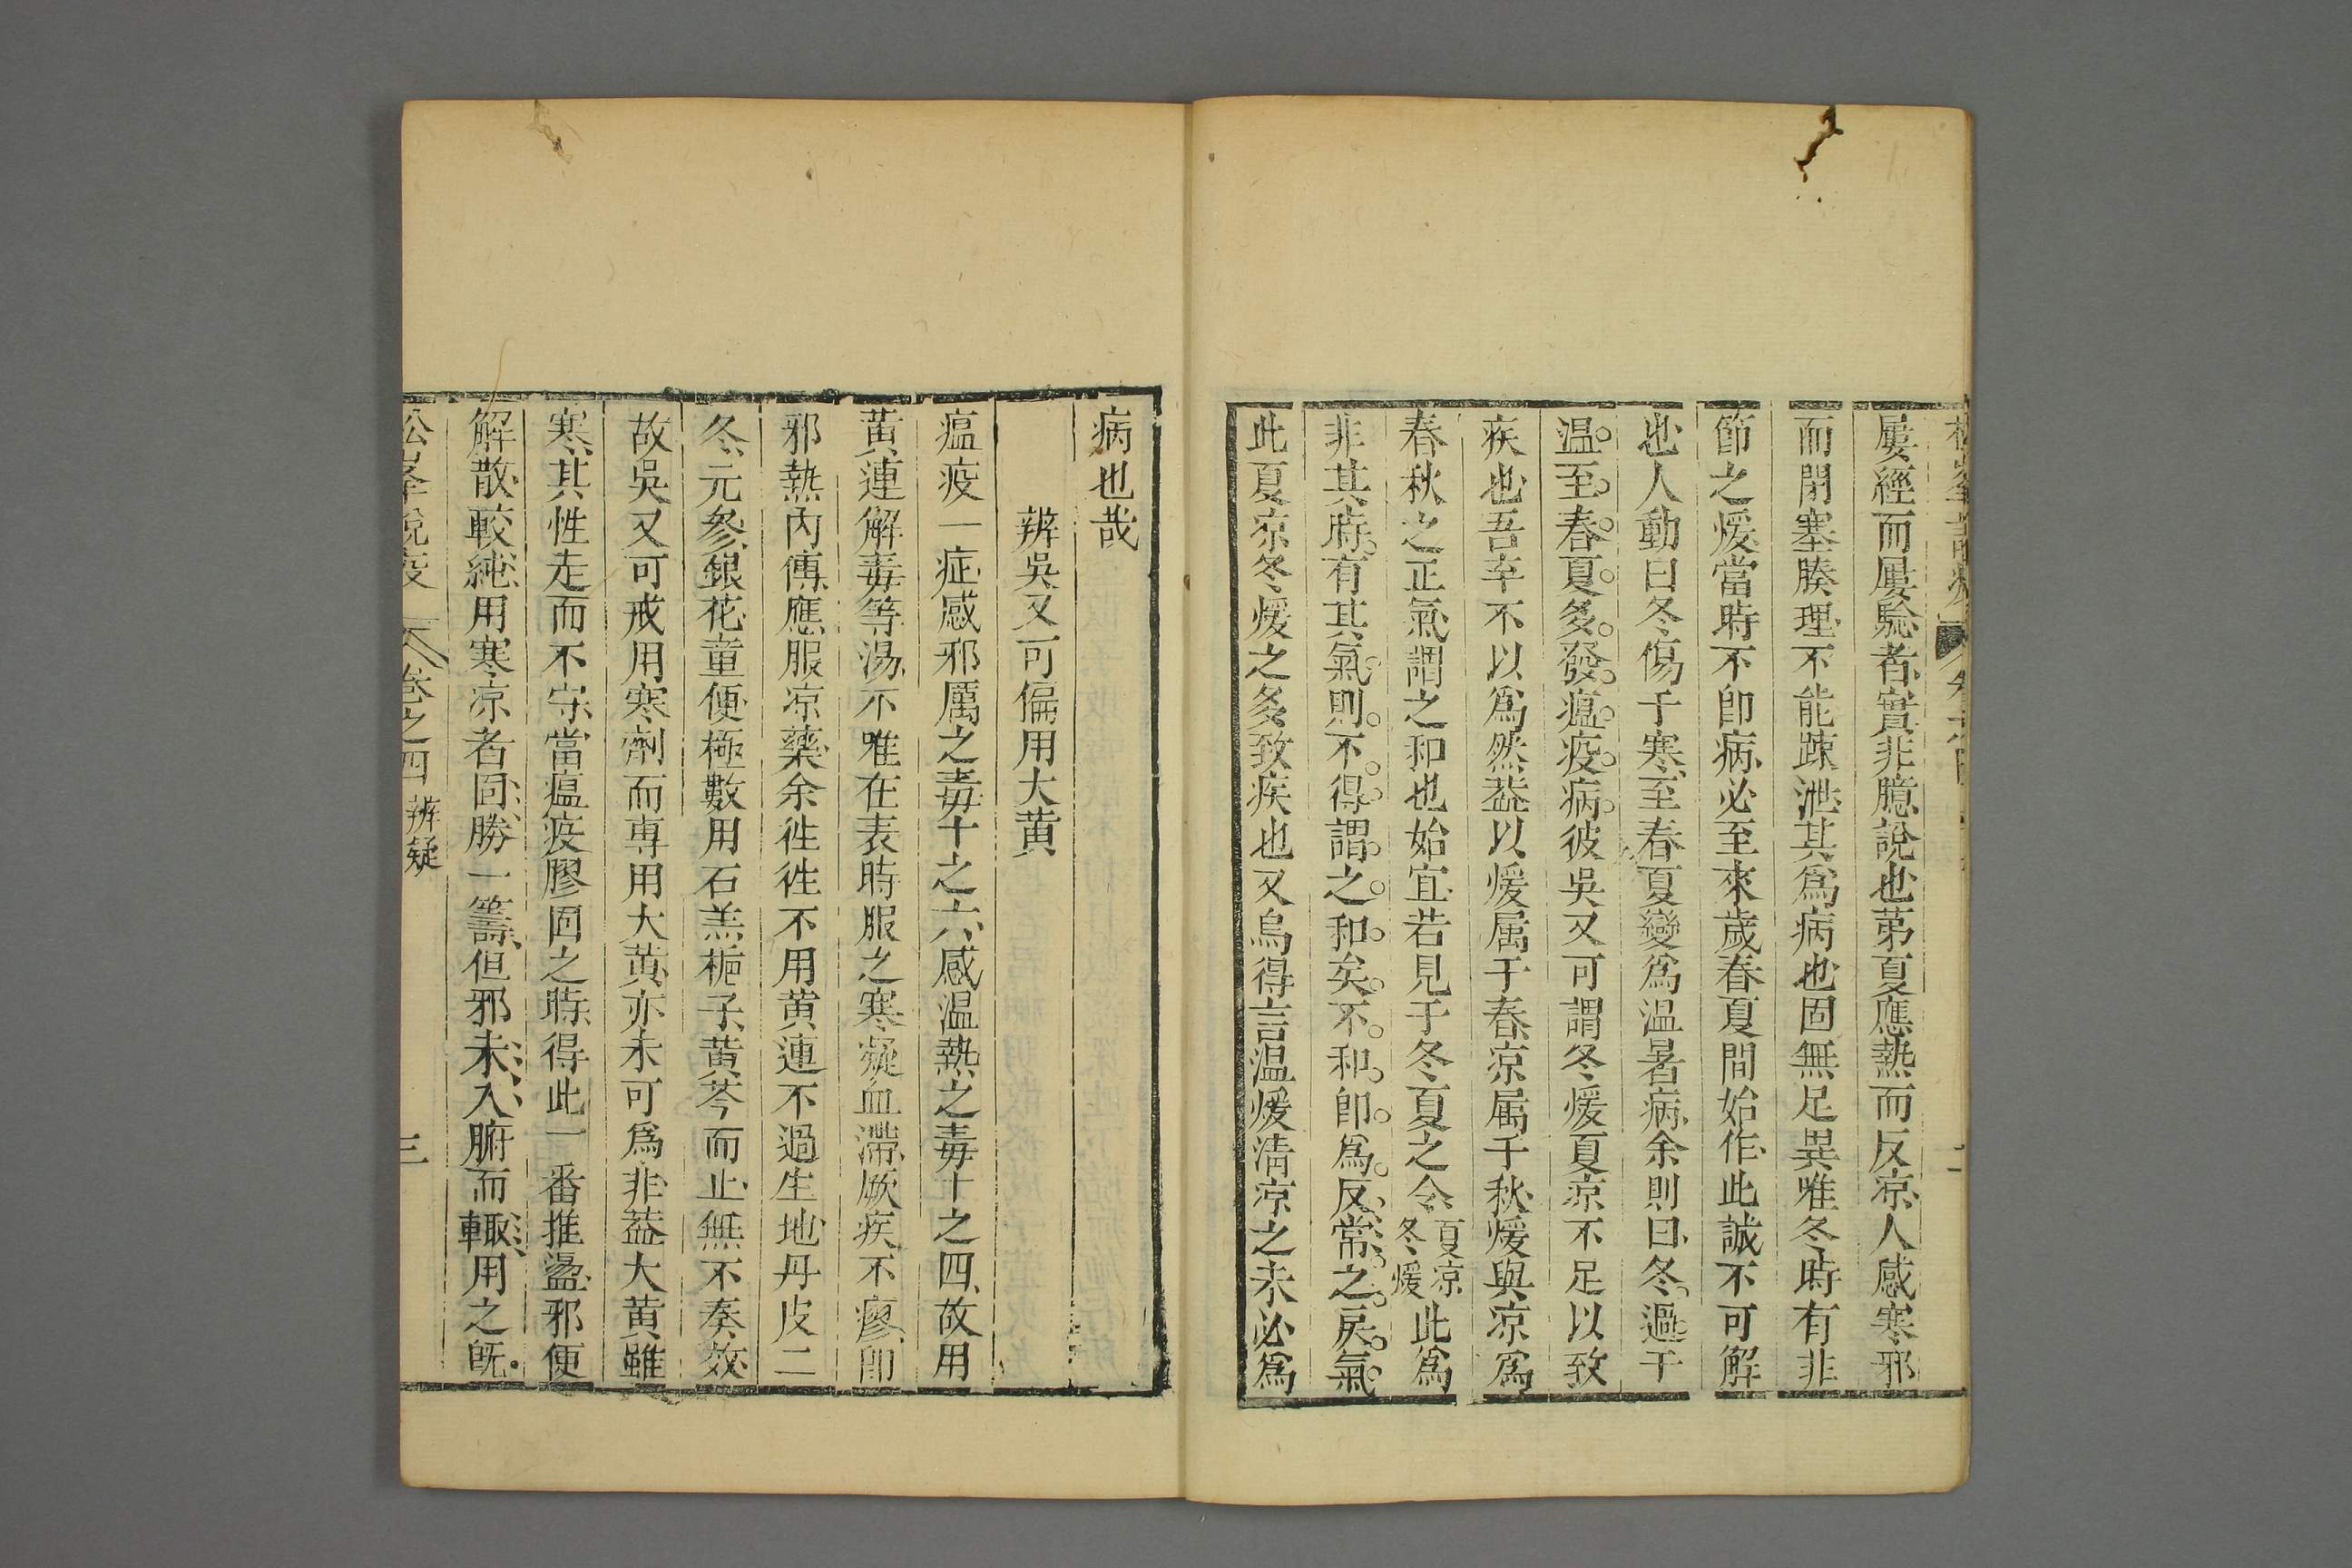 屢經而屢驗者實非臆說也第夏應熱而反凉人感寒邪
而閉塞腠理不能疎泄其爲病也固無足異唯冬時有非
節之煖當時不卽病必至來歲春夏間始作此誠不可解
也人動曰冬傷于寒至春夏變爲温暑病余則曰冬過于
温至春夏多發瘟疫病彼吳又可謂冬煖夏凉不足以致
疾也吾幸不以爲然葢以煖属于春凉属于秋煖與凉爲
春秋之正氣謂之和也始宜若見于冬夏之令夏凉冬煖此爲
非其時有其氣則不得謂之和矣不和卽爲反常之戾氣
此夏凉冬煖之多致疾也又烏得言温煖淸凉之未必爲
病也哉
辨吳又可偏用大黄
瘟疫一症感邪厲之毒十之六感温熱之毒十之四故用
黃連解毒等湯不唯在表時服之寒凝血滯厥疾不瘳卽
邪熱內傳應服凉藥余徃徃不用黄連不過生地丹皮二
冬元參銀花童便極數用石羔梔子黄芩而止無不奏效
故吳又可戒用寒劑而専用大黄亦未可爲非葢大黄雖
寒其性走而不守當瘟疫膠固之時得此一番推盪邪便
解散較純用寒凉者固勝一籌但邪未入腑而輙用之旣
松峯說疫 卷之四 辨疑 三